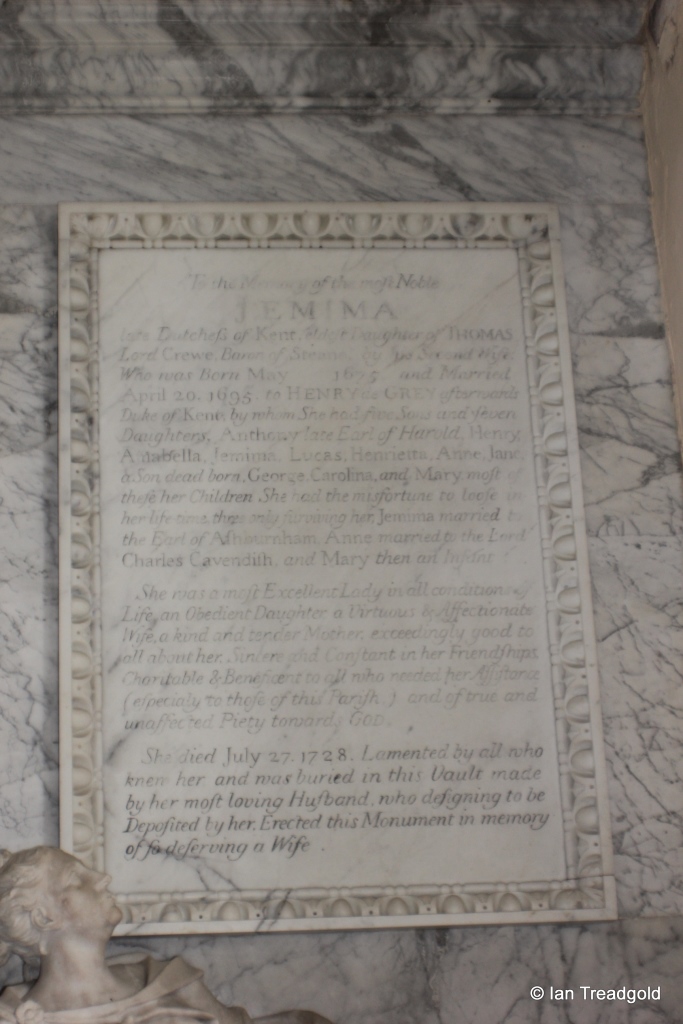 To the Memory of the most Noble
JEMIMA
late Dutchess of Kent, eldest Daughter of THOMAS
Lord Crewe, Baron of Steane, by his Second Wife
Who was Born May 1675 and Married
April 20. 1695. to HENRY de GREY afterwards
Duke of Kent, by whom She had five Sons and seven
Daughters, Anthony late Earl of Harold, Henry,
Amabella, Jemima, Lucas, Henrietta, Anne, Jane,
a Son dead born, George, Carolina, and Mary most of
these her Children She had the misfortune to loose in
her life time, three only surviving her, Jemima married to
the Earl of Ashburnham, Anne married to the Lord
Charles Cavendish, and Mary then an Infant
She was a most Excellent Lady in all conditions of
Life, an Obedient Daughter a Virtuous & Affectionate
Wife, a kind and tender Mother, exceedingly good to
all about her, Sincere and Constant in her Friendships
Charitable & Beneficent to all who needed her Assistance
(especialy to those of this Parish.) and of true and
unaffected Piety towards GOD.
She died July 27. 1728. Lamented by all who
knew her and was buried in this Vault made
by her most loving Husband, who designing to be
Deposited by her, Erected this Monument in memory
of so deserving a Wife.
© Ian Treadgold